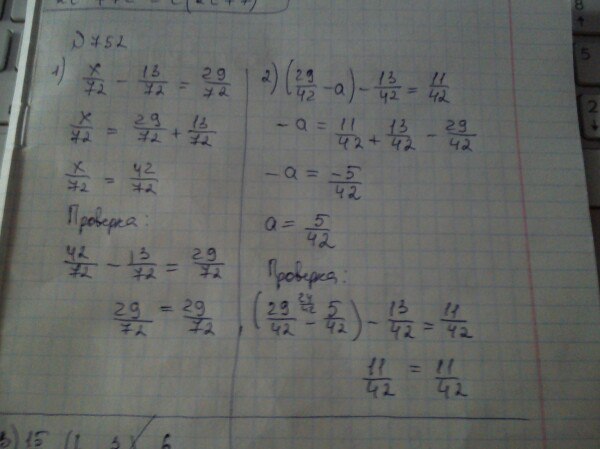 № 752
1) x/72 - 13/72 = 29/72
x/72 = 29/72 + 13/72
x/72 = 42/72
Проверка:
42/72 - 13/72 = 29/72
29/72 = 29/72
2) (29/42 - a) - 13/42 = 11/42
-a = 11/42 + 13/42 - 29/42
-a = -5/42
a = 5/42
Проверка:
24/42
(29/42 - 5/42) - 13/42 = 11/42
11/42 = 11/42
3) 15